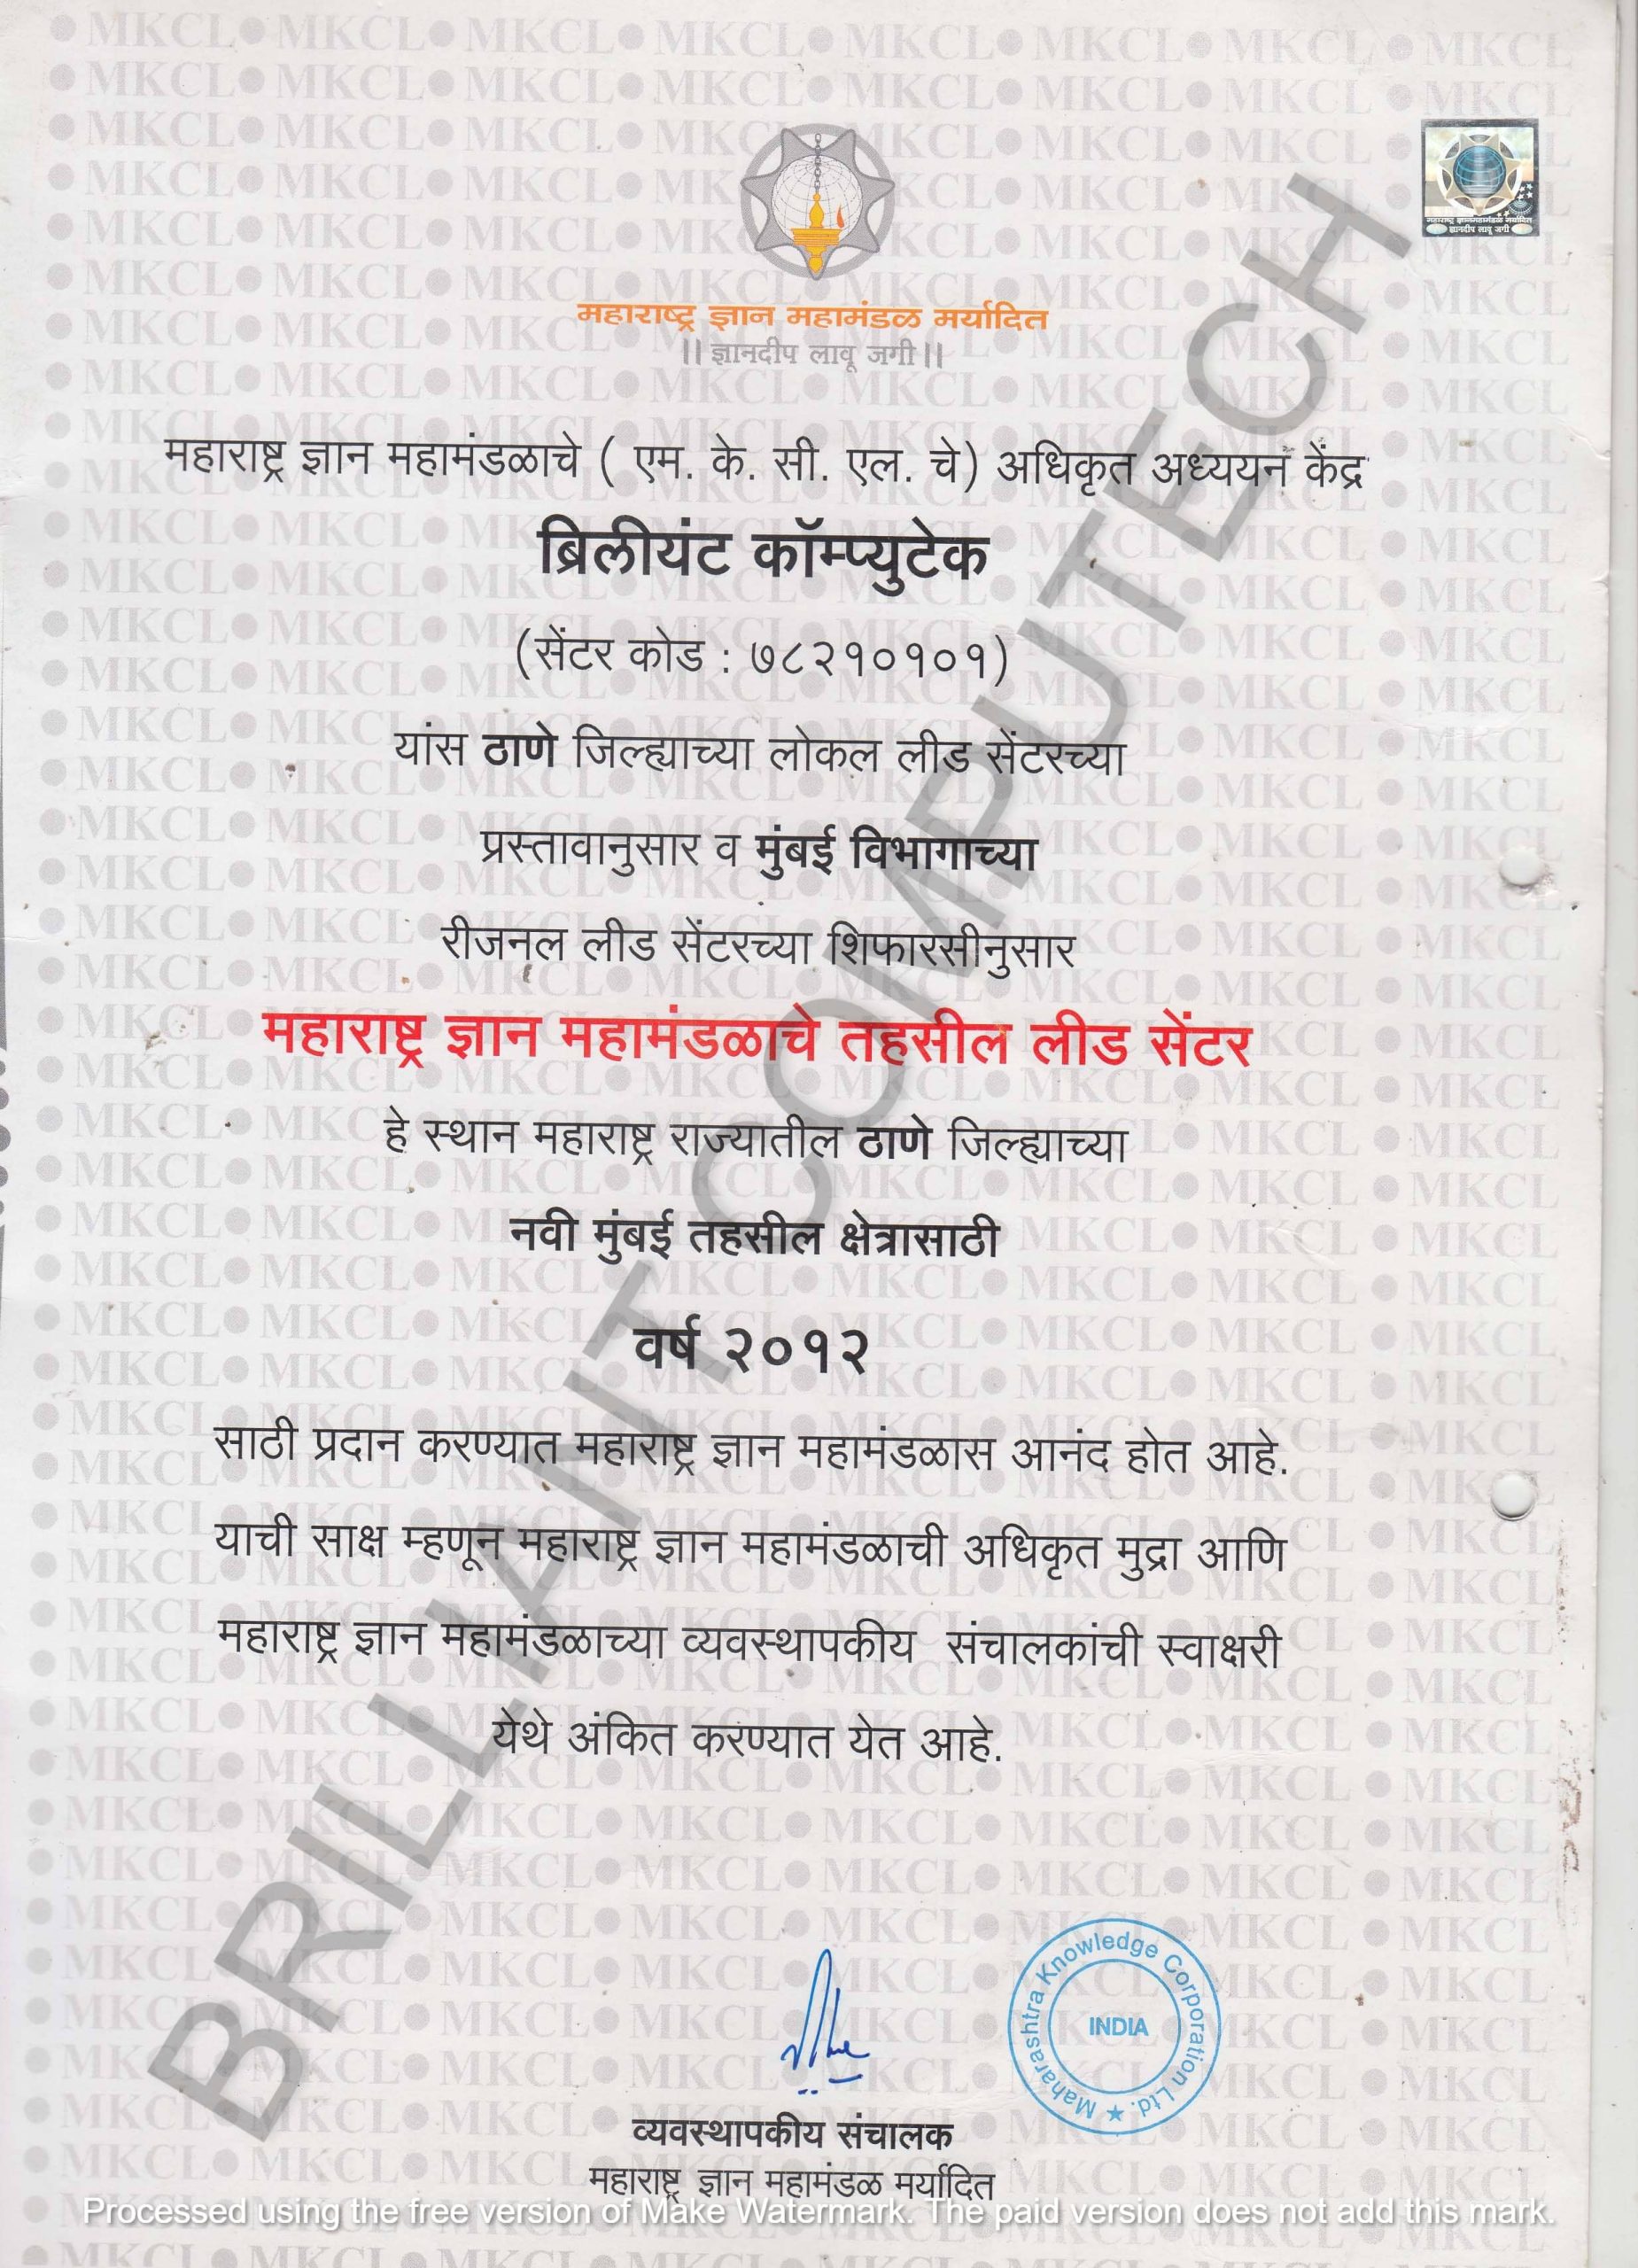 महाराष्ट्र ज्ञान महामंडळ मर्यादित
|| ज्ञानदीप लावू जगी ||
महाराष्ट्र ज्ञानमहामंडळ मर्यादित
ज्ञानदीप लावू जगी
महाराष्ट्र ज्ञान महामंडळाचे ( एम. के. सी. एल. चे) अधिकृत अध्ययन केंद्र
ब्रिलीयंट कॉम्प्युटेक
(सेंटर कोड : ७८२१०१०१)
यांस ठाणे जिल्ह्याच्या लोकल लीड सेंटरच्या
प्रस्तावानुसार व मुंबई विभागाच्या
रीजनल लीड सेंटरच्या शिफारसीनुसार
महाराष्ट्र ज्ञान महामंडळाचे तहसील लीड सेंटर
हे स्थान महाराष्ट्र राज्यातील ठाणे जिल्ह्याच्या
नवी मुंबई तहसील क्षेत्रासाठी
वर्ष २०१२
साठी प्रदान करण्यात महाराष्ट्र ज्ञान महामंडळास आनंद होत आहे.
याची साक्ष म्हणून महाराष्ट्र ज्ञान महामंडळाची अधिकृत मुद्रा आणि
महाराष्ट्र ज्ञान महामंडळाच्या व्यवस्थापकीय संचालकांची स्वाक्षरी
येथे अंकित करण्यात येत आहे.
Maharashtra Knowledge Corporation Ltd. ★
INDIA
व्यवस्थापकीय संचालक
महाराष्ट्र ज्ञान महामंडळ मर्यादित
BRILLIANT COMPUTECH
Processed using the free version of Make Watermark. The paid version does not add this mark.